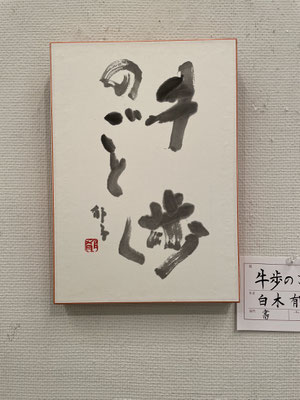 牛歩
のごとし
牛歩の
白木
書